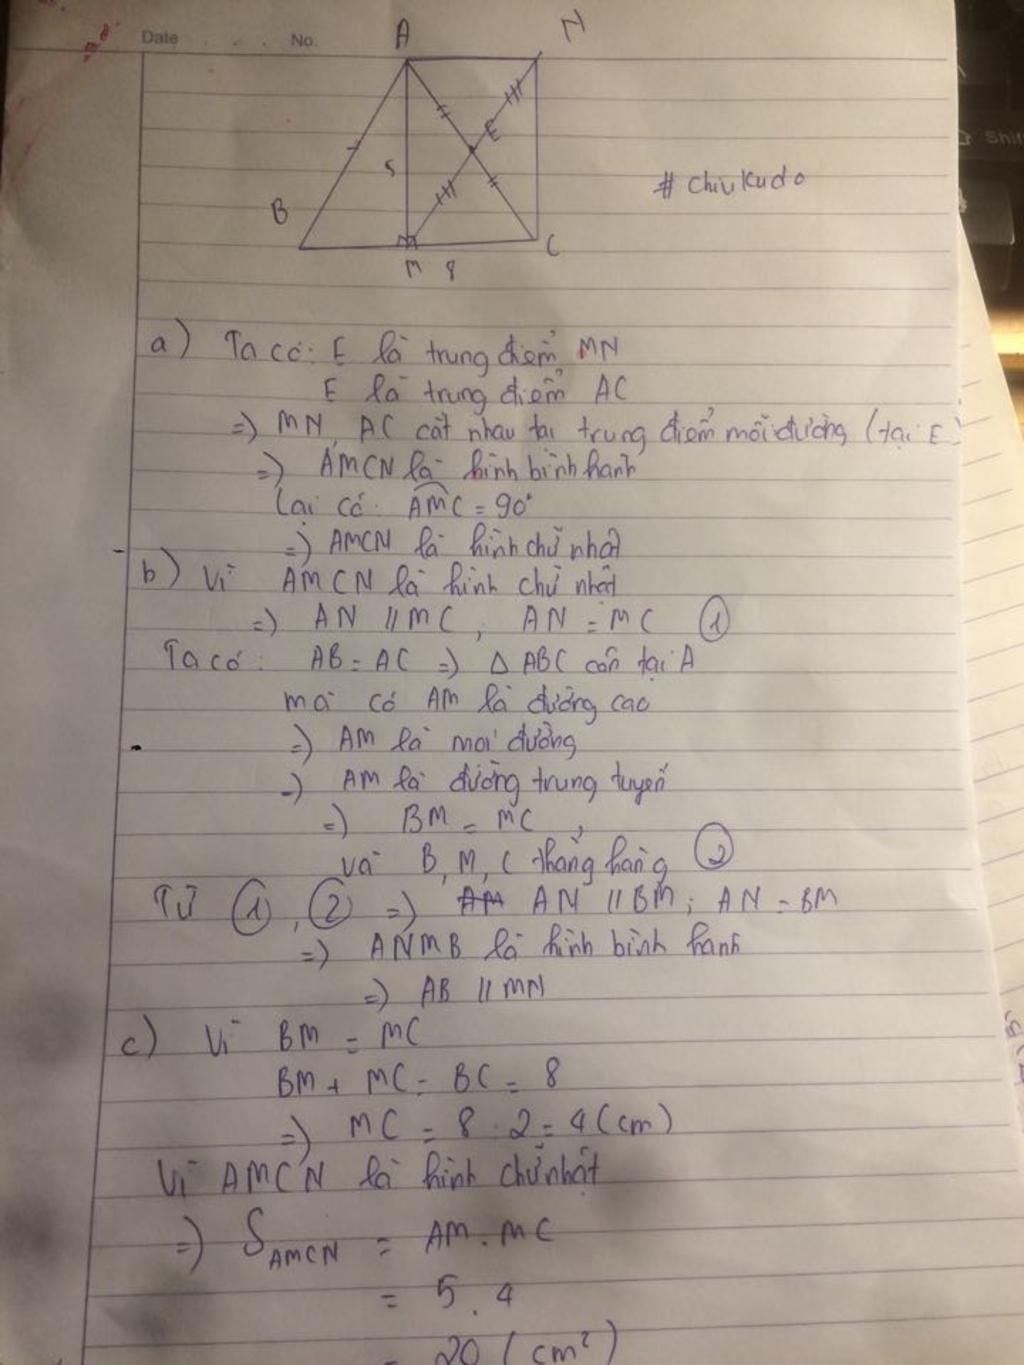 Date No.
A N
E
5
# chiukudo
B
C
M 8
a) Ta có: E là trung điểm MN
E là trung điểm AC
=) MN, AC cắt nhau tại trung điểm mỗi đường (tại E)
=) AMCN là hình bình hành
Lại có: AMC = 90°
=) AMCN là hình chữ nhật
b) Vì AMCN là hình chữ nhật
=) AN // MC; AN = MC ①
Ta có: AB = AC =) Δ ABC cân tại A
mà có AM là đường cao
=) AM là mọi đường
=) AM là đường trung tuyến
=) BM = MC,
và B, M, C thẳng hàng ②
Từ ①, ② =) AM AN // BM; AN = BM
=) ANMB là hình bình hành
=) AB // MN
c) Vì BM = MC
BM + MC = BC = 8
=) MC = 8 : 2 = 4 (cm)
Vì AMCN là hình chữ nhật
=) S AMCN = AM . MC
= 5 . 4
= 20 (cm²)
Shift